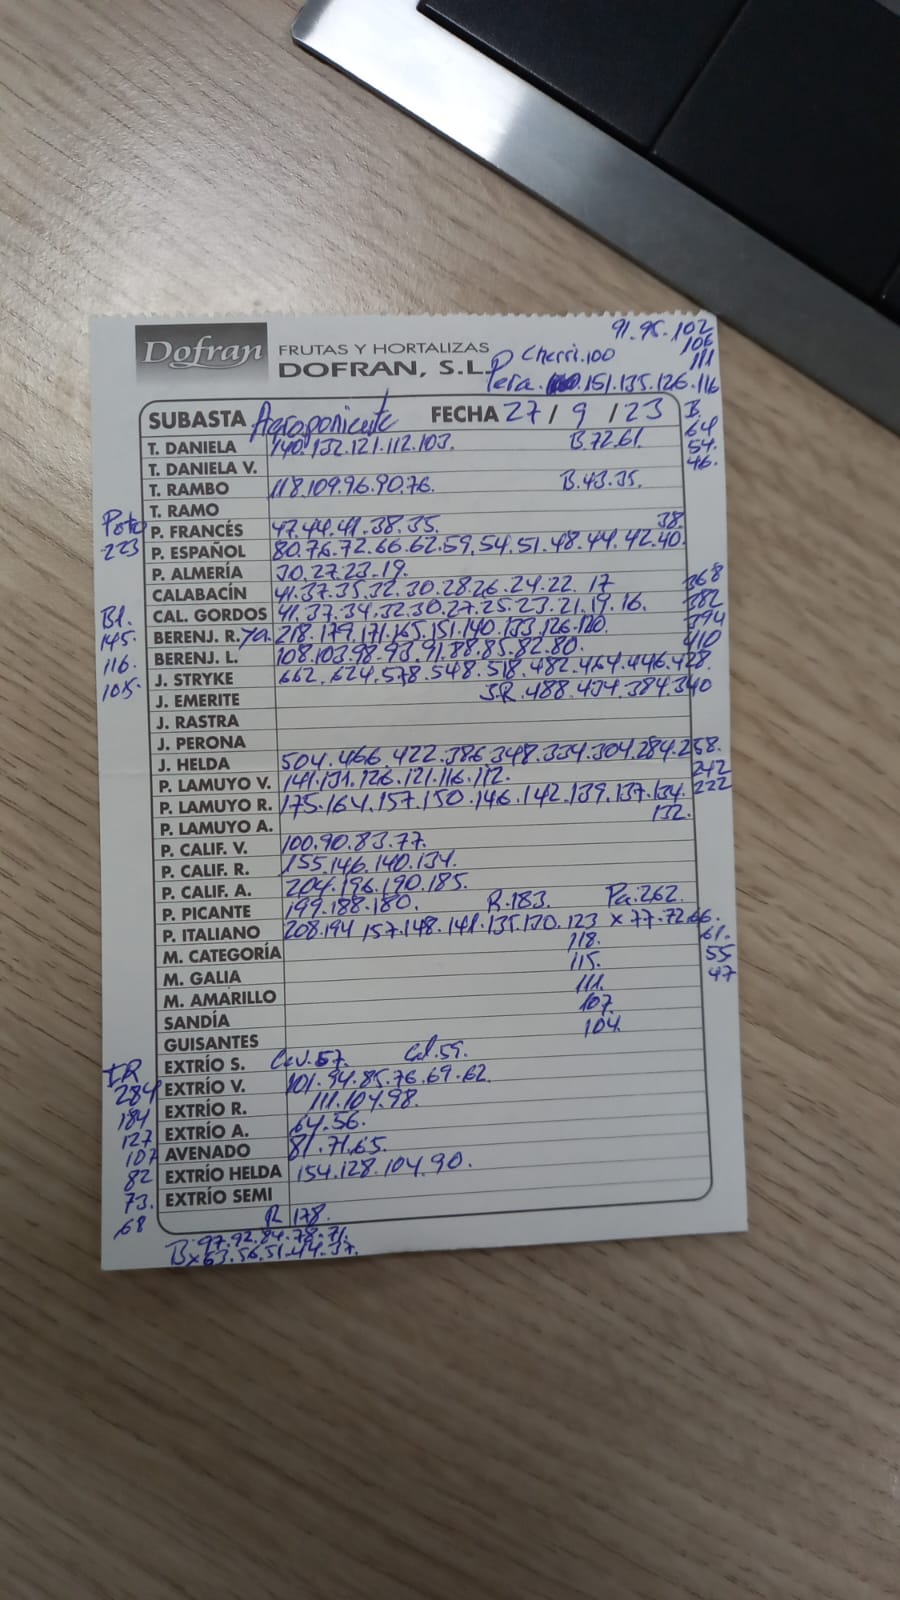 91.95.102
106
111
Dofran FRUTAS Y HORTALIZAS
DOFRAN, S.L.
P Cherri.100
Pera. 151.135.126.116
SUBASTA Agroponiente FECHA 27/9/23 B.
64
54.
46.
T. DANIELA 140.132.121.112.103. B.72.61.
T. DANIELA V.
T. RAMBO 118.109.96.90.76. B.43.35.
T. RAMO
223
P. FRANCÉS 47.44.41.38.35. 38.
P. ESPAÑOL 80.76.72.66.62.59.54.51.48.44.42.40.
P. ALMERÍA 30.27.23.19.
CALABACÍN 41.37.35.32.30.28.26.24.22. 17
CAL. GORDOS 41.37.34.32.30.27.25.23.21.19.16.
368
382
394
410
Bl.
145.
116.
105.
BERENJ. R. 218.179.171.165.151.140.133.126.120.
BERENJ. L. 108.103.98.93.91.88.85.82.80.
J. STRYKE 662.624.578.548.518.482.464.446.428.
J. EMERITE S.R.488.434.384.340
J. RASTRA
J. PERONA
J. HELDA 504.466.422.386.348.334.304.284.258.
242
222
P. LAMUYO V. 141.131.126.121.116.112.
P. LAMUYO R. 175.164.157.150.146.142.139.137.134.
132.
P. LAMUYO A.
P. CALIF. V. 100.90.83.77.
P. CALIF. R. 155.146.140.134.
P. CALIF. A. 204.196.190.185.
P. PICANTE 199.188.180. R.183. Pa.262.
P. ITALIANO 208.194 157.148.141.135.130.123 x 77.72.66.
61.
55
47
M. CATEGORÍA 118.
M. GALIA 115.
M. AMARILLO 111.
SANDÍA 107.
GUISANTES 104.
EXTRÍO S. 57. Cal.59.
EXTRÍO V. 101.94.85.76.69.62.
EXTRÍO R. 111.104.98.
EXTRÍO A. 64.56.
AVENADO 81.71.65.
EXTRÍO HELDA 154.128.104.90.
EXTRÍO SEMI
284
184
127
107
82
73.
68
R 178.
B.97.92.84.78.71.
Bx63.56.51.44.37.